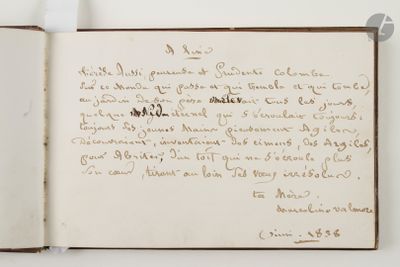 A Line
Sur ce Monde qui passe et qui tremble et qui tombe,
au jardin de son père élevait tous les jours,
quelque nid éternel qui s'écroulait toujours:
toujours ses jeunes Mains pieusement Agiles,
Découvraient, inventaient des ciments, des Argiles,
pour Abriter, d'un toit qui ne s'écroule plus
son cœur, tirant au loin ses vœux irrésolus.
ta Mère,
Marceline Valmore
1838